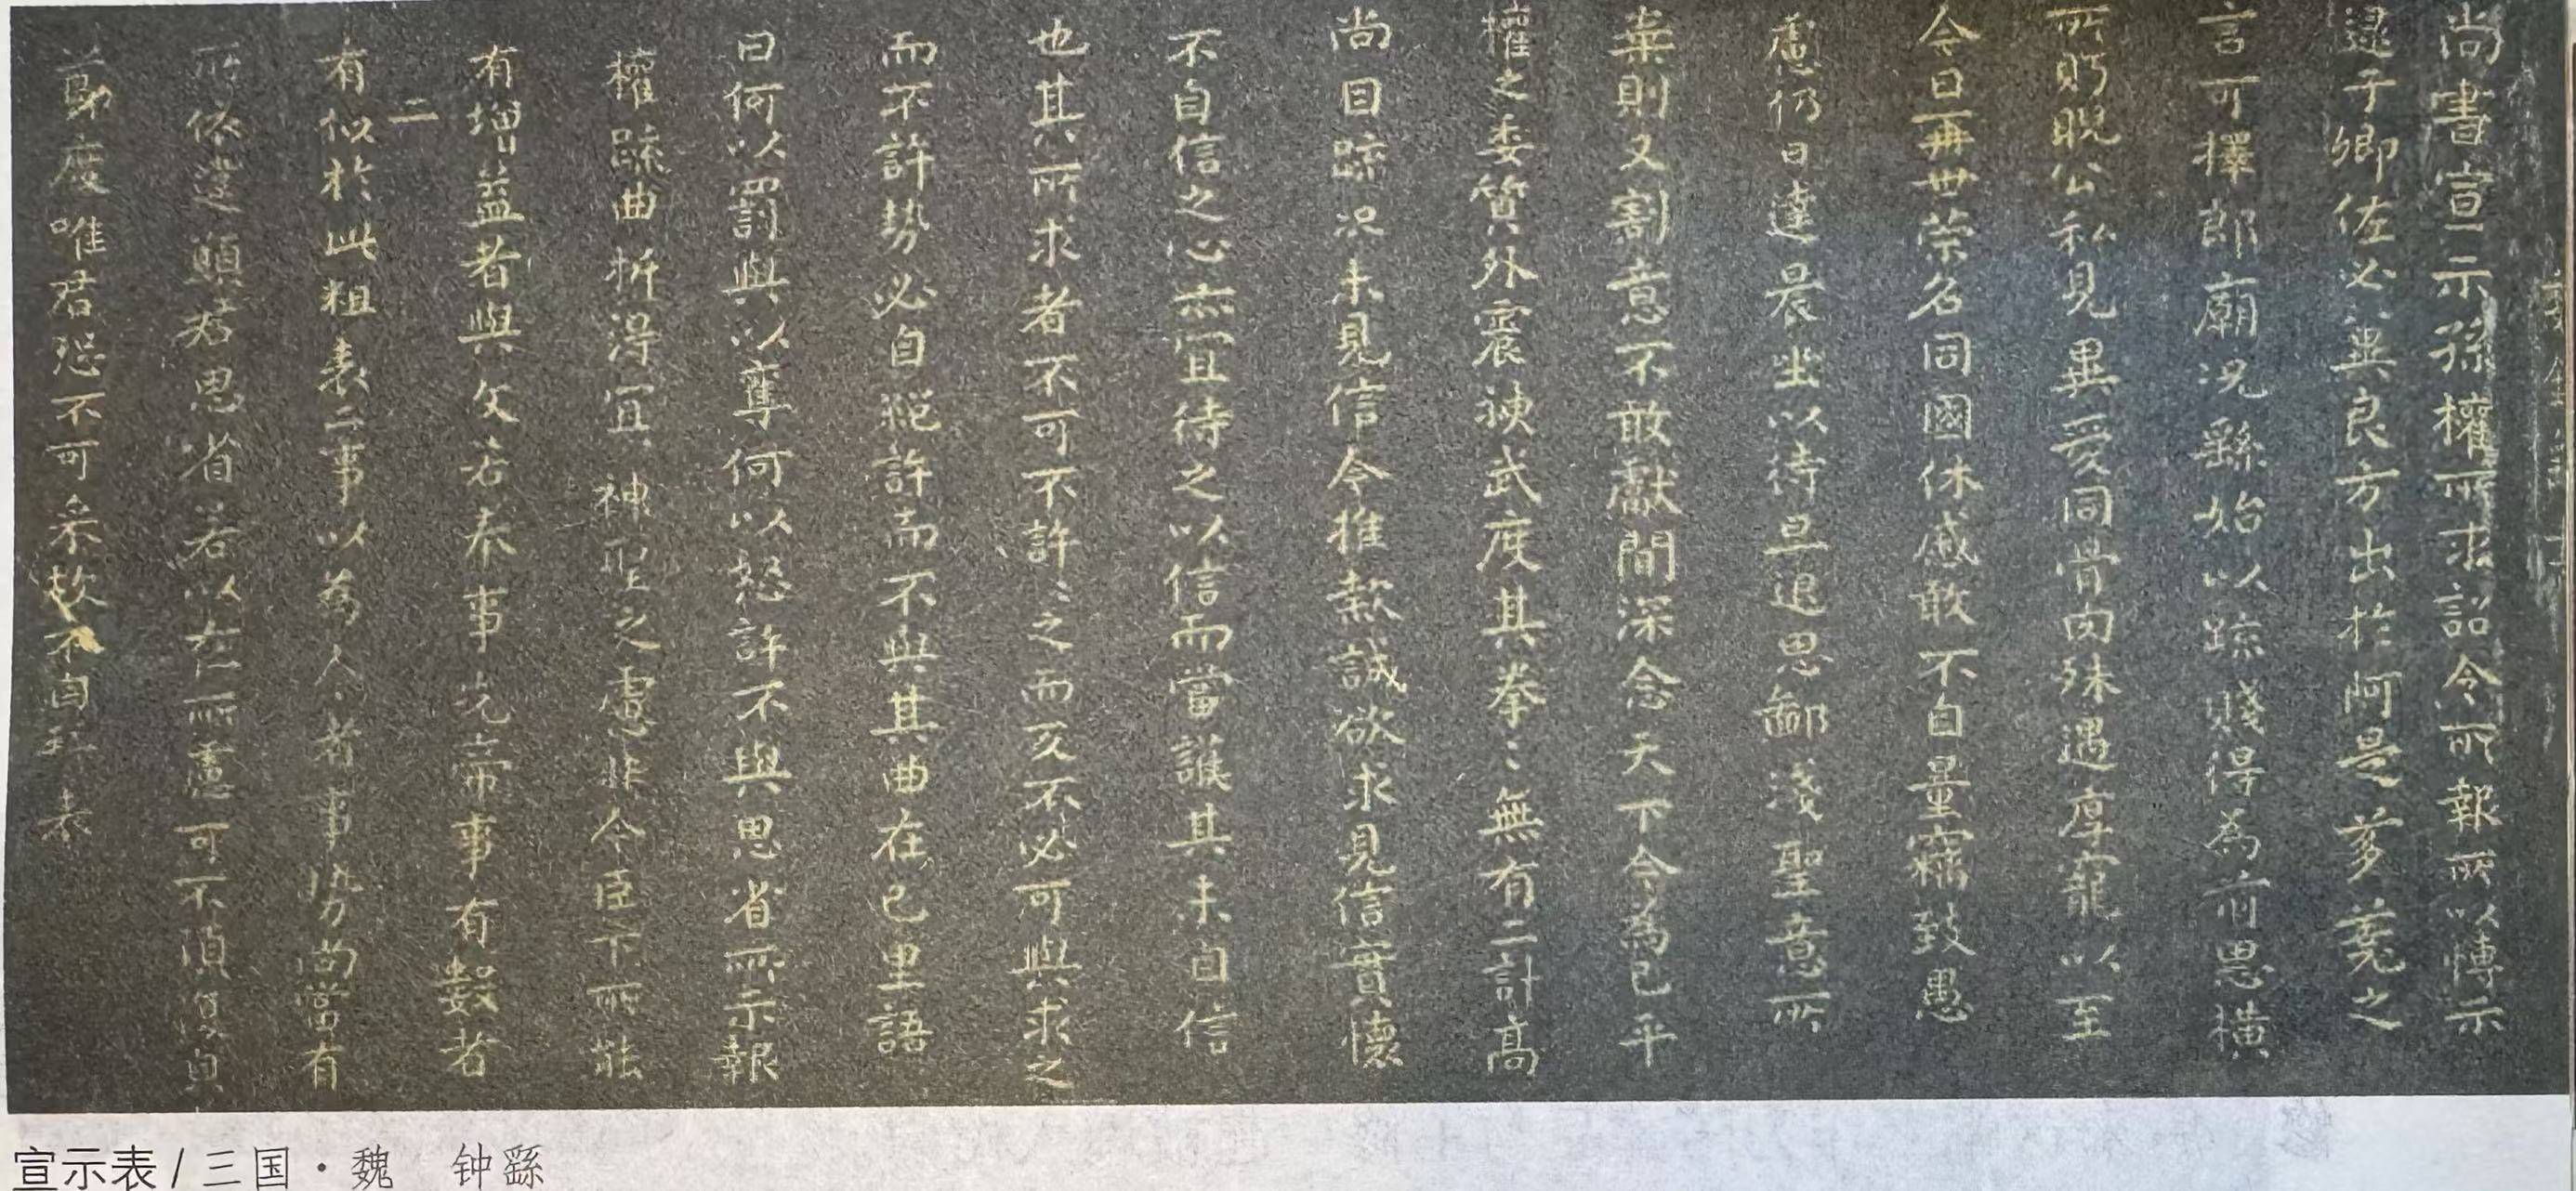 尚書宣示孫權所求詔令所報所以博示
逮于卿佐必冀良方出於阿是芻蕘之
言可擇郎廟況繇始以疏賤得為前恩橫
所眄睨公私見異愛同骨肉殊遇厚寵以至
今日再世榮名同國休慼敢不自量竊致愚
慮仍日達晨坐以待旦退思鄙淺聖意所
棄則又割意不敢獻聞深念天下今為已平
權之委質外震神武度其拳〻無有二計高
尚自疏況未見信今推款誠欲求見信實懷
不自信之心亦宜待之以信而當護其未自信
也其所求者不可不許〻之而反不必可與求之
而不許勢必自絕許而不與其曲在己里語
曰何以罰與以奪何以怒許不與思省所示報
權疏曲折得宜神聖之慮非今臣下所能
有增益昔與文若奉事先帝事有數者
有似於此粗表二事以為今者事勢尚當有
二
所依違願君思省若以在所慮可不須復貌
節度唯君恐不可采故不自拜表
宣示表/三国·魏 钟繇